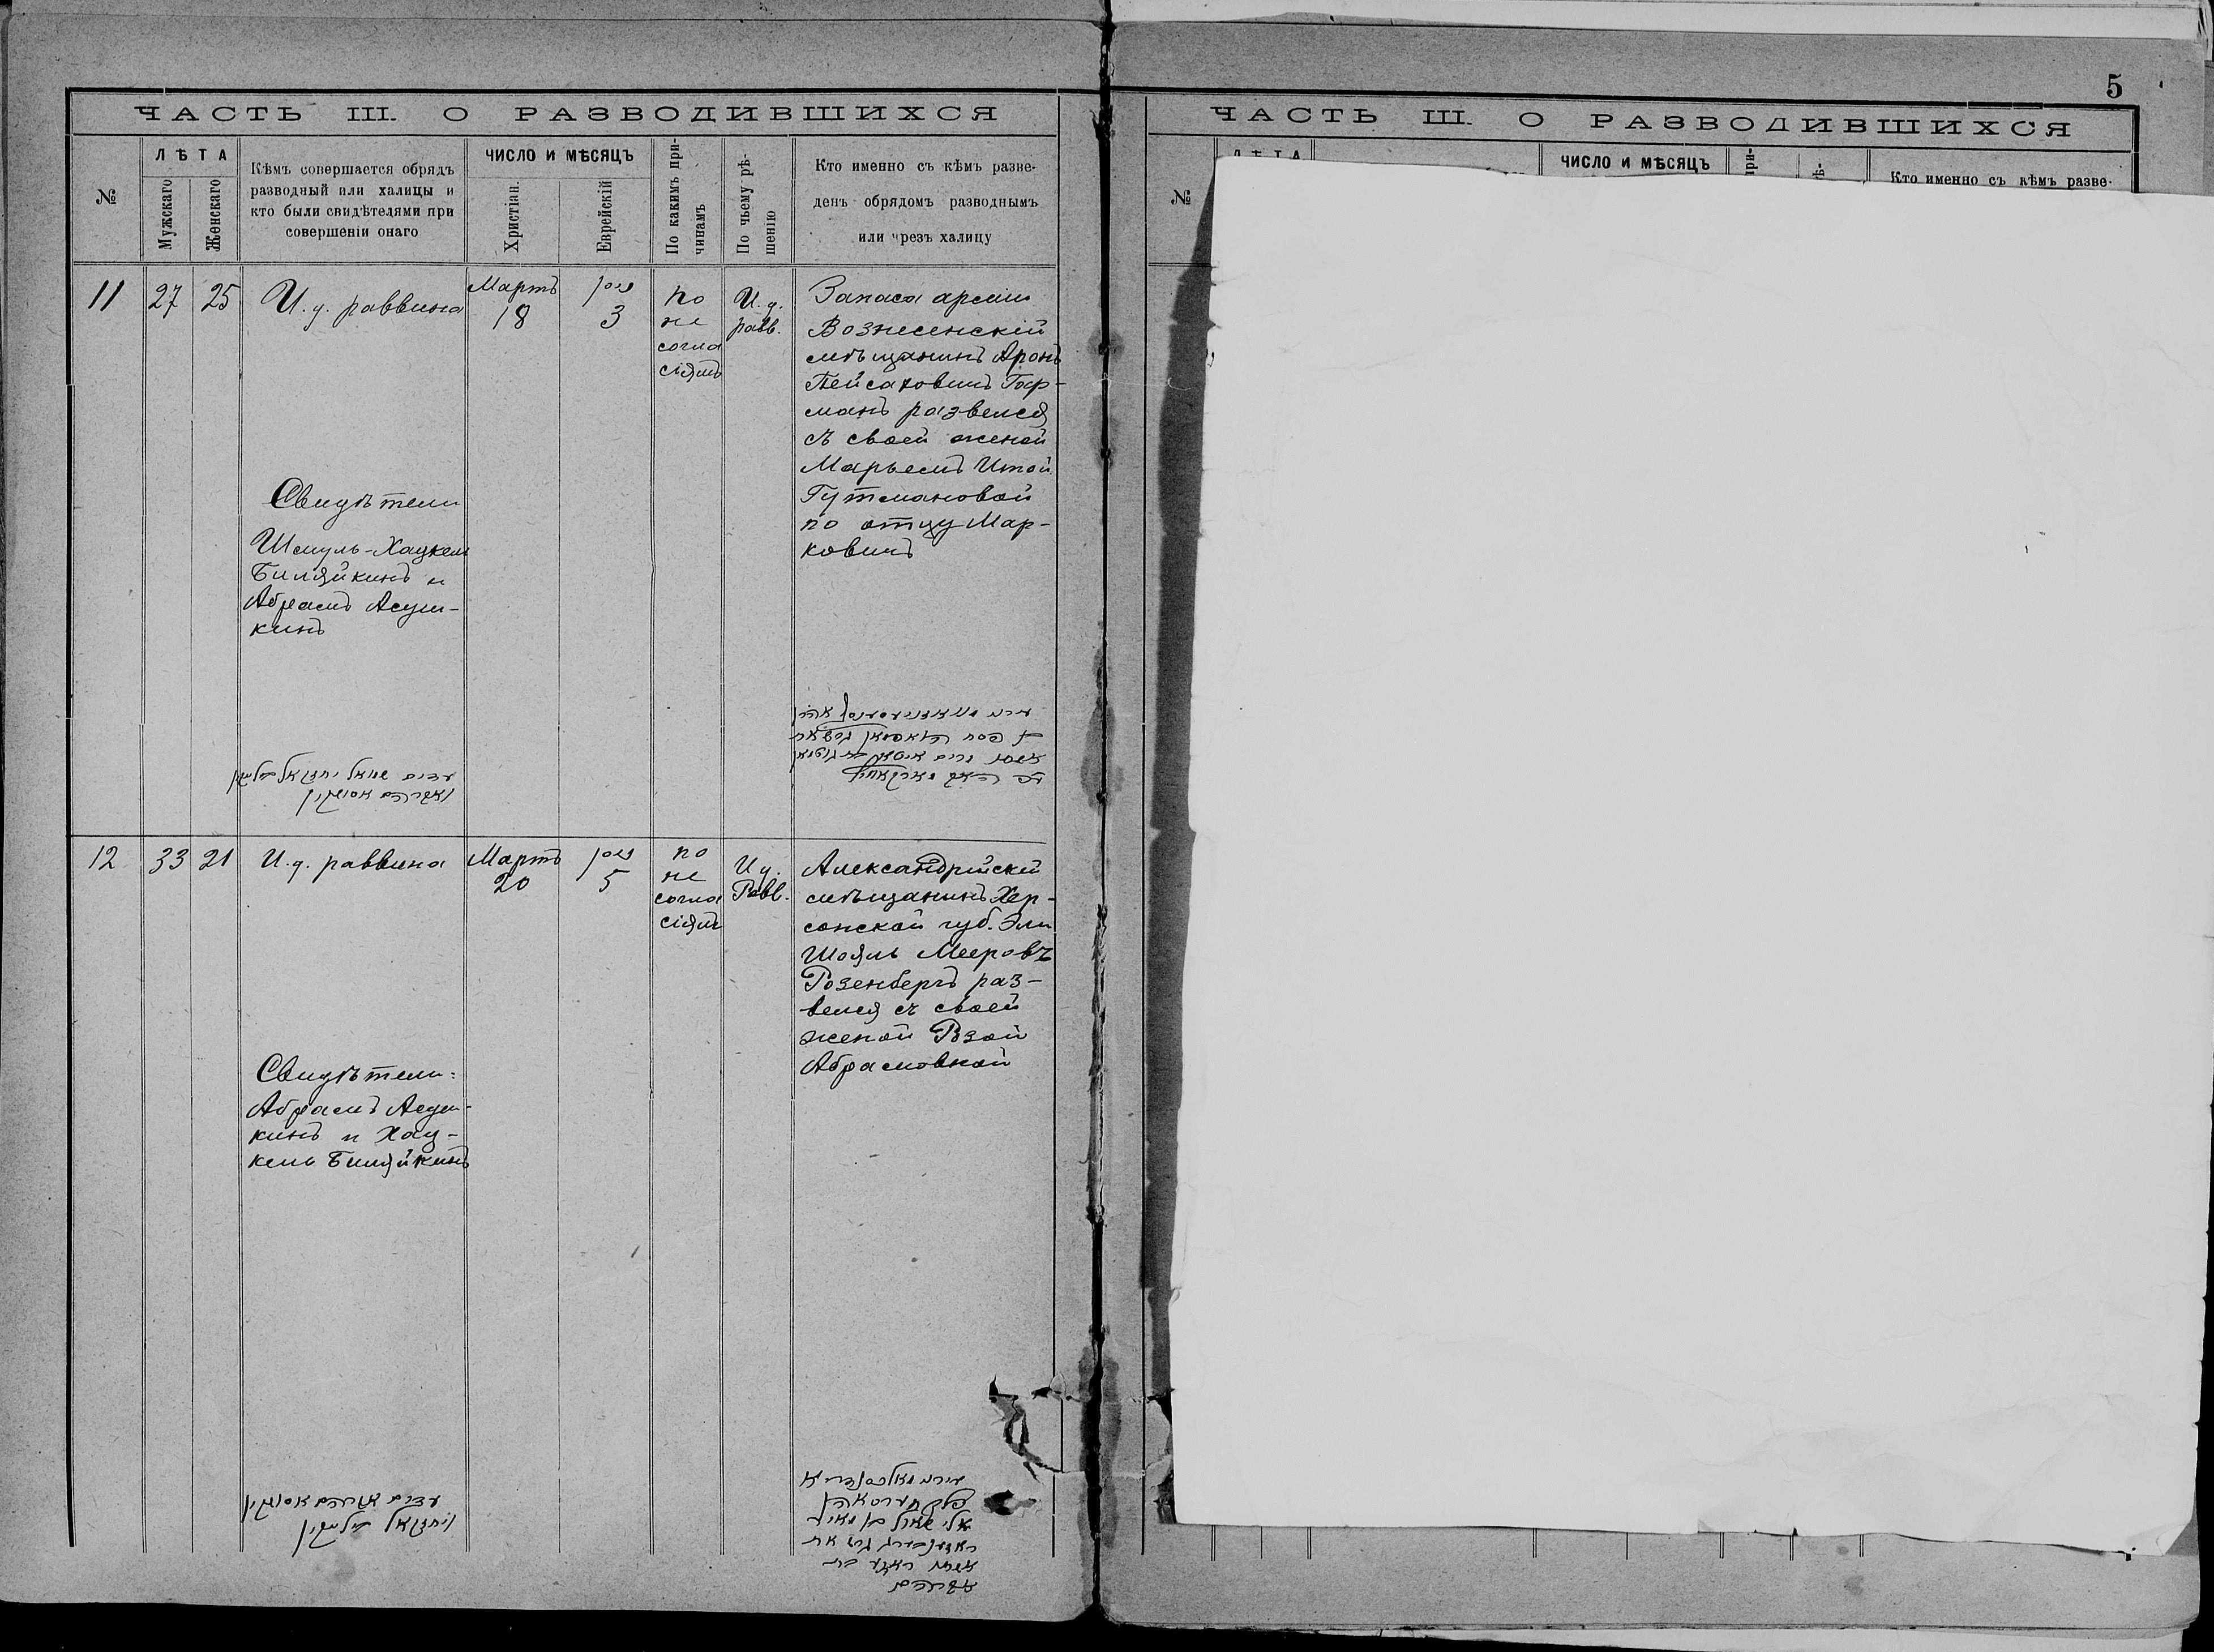 ЧАСТЬ III. О РАЗВОДИВШИХСЯ
№
ЛѢТА
Мужскаго
Женскаго
Кѣмъ совершается обрядъ
разводный или халицы и
кто были свидѣтелями при
совершеніи онаго
ЧИСЛО И МѢСЯЦЪ
Христіан.
Еврейскій
По какимъ при-
чинамъ
По чьему рѣ-
шенію
Кто именно съ кѣмъ разве-
денъ обрядомъ разводнымъ
или чрезъ халицу
11
27
25
И. д. раввина
Свидѣтели
Шмуль-Хацкель
Биляйкинъ и
Абрамъ Асуш-
кинъ
עדים שמואל יחזקאל בילייקין
ואברהם אסושקין
Мартъ
18
ניסן
3
по
не
согла
сіямъ
И. д.
равв.
Запаса арміи
Вознесенскій
мѣщанинъ Аронъ
Пейсаховичъ Гор-
манъ развелся
съ своей женой
Марьемъ Итой
Гутмановой
по отцу Мар-
ковичъ
12
33
21
И. д. раввина
Свидѣтели:
Абрамъ Асуш-
кинъ и Хац-
кель Биляйкинъ
עדים אברהם אסושקין
ויחזקאל בילייקין
Мартъ
20
ניסן
5
по
не
согла
сіямъ
И д.
Равв.
Александрійскій
мѣщанинъ Хер-
сонской губ. Эли
Шояль Мееровъ
Розенбергъ раз-
велся съ своей
женой Рзой
Абрамовной
אלי שאול בן מאיר
ראזענבערג גרש את
אברהם
5
ЧАСТЬ III. О РАЗВОДИВШИХСЯ
№
ЛѢТА
ЧИСЛО И МѢСЯЦЪ
при-
рѣ-
Кто именно съ кѣмъ разве-